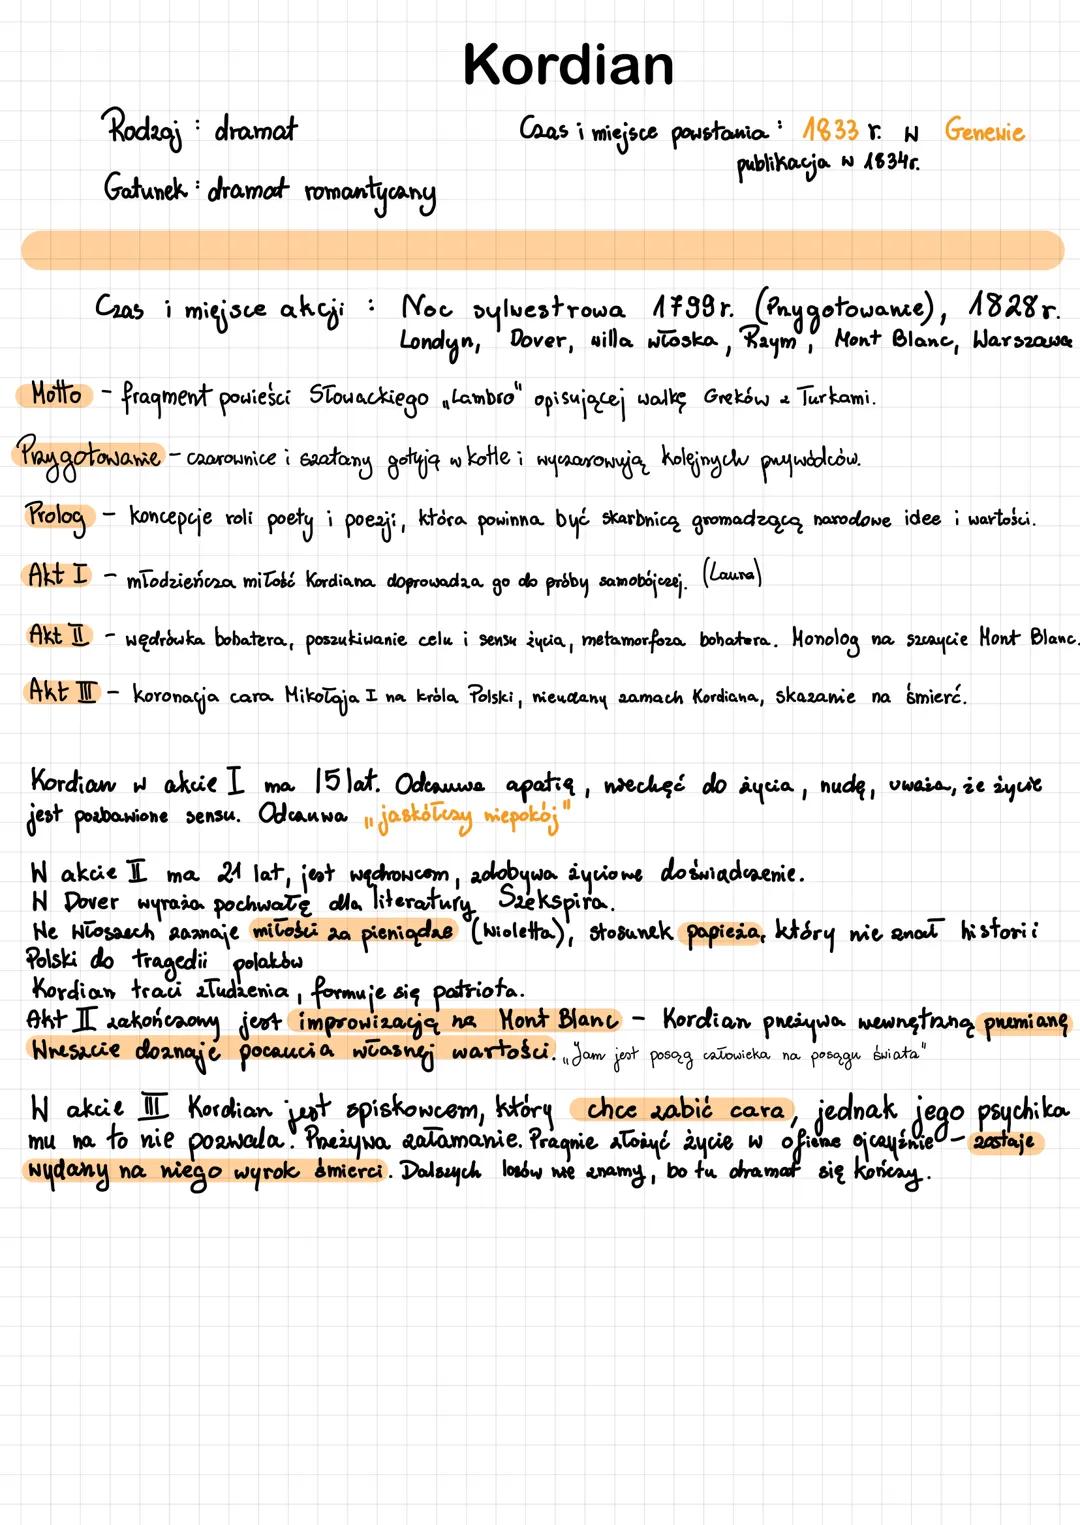 Kordian
Rodzaj : dramat
Czas i miejsce powstania : 1833 r. w Genewie
publikacja w 1834r.
Gatunek : dramat romantyczny
Czas i miejsce akcji : Noc sylwestrowa 1799r. (Przygotowanie), 1828r.
Londyn, Dover, willa włoska, Rzym, Mont Blanc, Warszawa
Motto - fragment powieści Słowackiego „Lambro" opisującej walkę Greków z Turkami.
Przygotowanie - czarownice i szatany gotują w kotle i wyczarowują kolejnych przywódców.
Prolog - koncepcje roli poety i poezji, która powinna być skarbnicą gromadzącą narodowe idee i wartości.
Akt I - młodzieńcza miłość Kordiana doprowadza go do próby samobójczej. (Laura)
Akt II - wędrówka bohatera, poszukiwanie celu i sensu życia, metamorfoza bohatera. Monolog na szczycie Mont Blanc.
Akt III - koronacja cara Mikołaja I na króla Polski, nieudany zamach Kordiana, skazanie na śmierć.
Kordian w akcie I ma 15 lat. Odczuwa apatię, niechęć do życia, nudę, uważa, że życie
jest pozbawione sensu. Odczuwa „jaskółczy niepokój"
W akcie II ma 21 lat, jest wędrowcem, zdobywa życiowe doświadczenie.
W Dover wyraża pochwałę dla literatury Szekspira.
We Włoszech zaznaje miłości za pieniądze (Wioletta), stosunek papieża, który nie znał historii
Polski do tragedii polaków
Kordian traci złudzenia, formuje się patriota.
Akt II zakończony jest improwizacją na Mont Blanc - Kordian przeżywa wewnętrzną przemianę
Wreszcie doznaje poczucia własnej wartości. „Jam jest posąg człowieka na posągu świata"
W akcie III Kordian jest spiskowcem, który chce zabić cara, jednak jego psychika
mu na to nie pozwala. Przeżywa załamanie. Pragnie złożyć życie w ofierze ojczyźnie - zostaje
wydany na niego wyrok śmierci. Dalszych losów nie znamy, bo tu dramat się kończy.